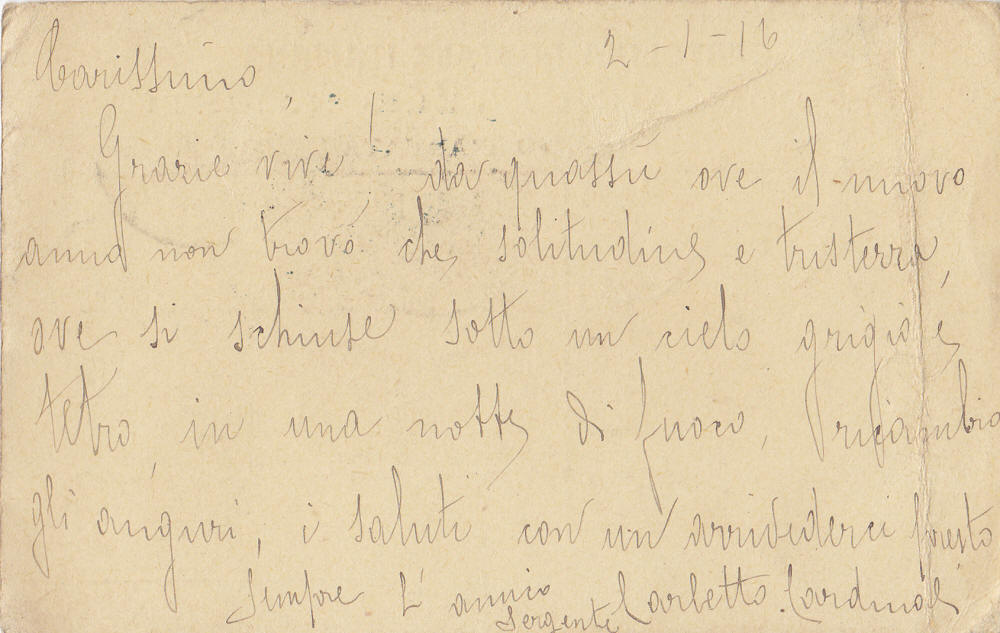 2-1-16
Carissimo,
Grazie vive! da quassù ove il nuovo
anno non trovò che solitudine e tristezza,
ove si schiuse sotto un cielo grigio e
tetro, in una notte di fuoco, ricambio
gli auguri, i saluti con un arrivederci presto
Sempre l'amico
Sergente Carbetto Cardinal